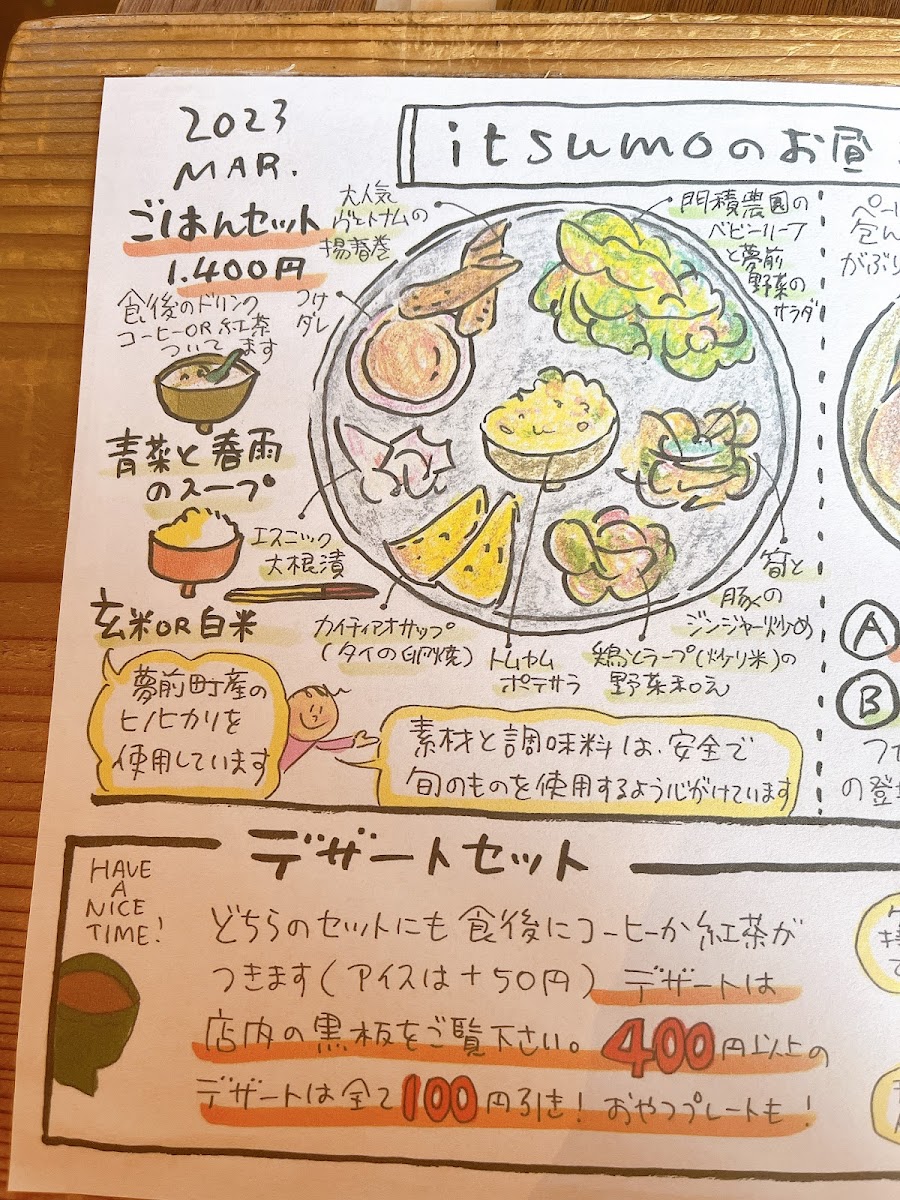 2023
MAR.
itsumoのお昼
ごはんセット
1.400円
食後のドリンク
コーヒーOR紅茶
ついてます
青菜と春雨
のスープ
玄米OR白米
夢前町産の
ヒノヒカリを
使用しています
大人気
ヴェトナムの
揚春巻
つけ
ダレ
門積農園の
ベビーリーフ
と夢前
野菜の
サラダ
エスニック
大根漬
カイティアオサップ
(タイの卵焼)
トムヤム
ポテサラ
鶏とラープ(炒り米)の
野菜和え
筍と
豚の
ジンジャー炒め
素材と調味料は、安全で
旬のものを使用するよう心がけています
包ん
がぶり
A
B
の登
デザートセット
HAVE
A
NICE
TIME!
どちらのセットにも食後にコーヒーか紅茶が
つきます(アイスは+50円)デザートは
店内の黒板をご覧下さい。400円以上の
デザートは全て100円引き!おやつプレートも!